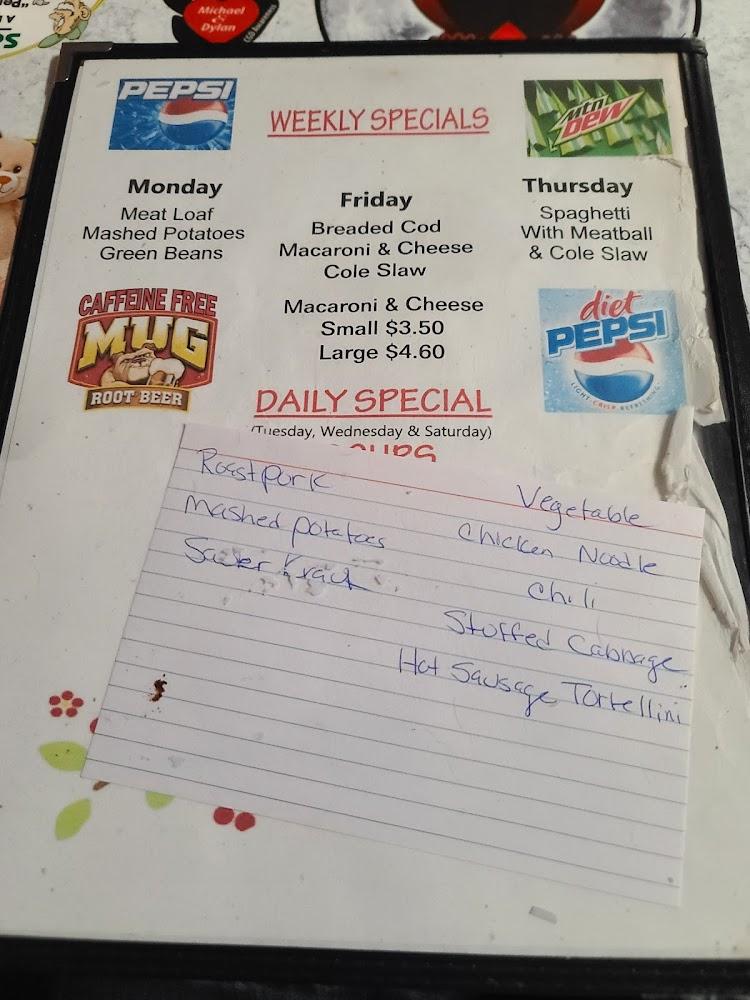 Michael
&
Dylan
PEPSI
WEEKLY SPECIALS
Mtn
DEW
Monday
Meat Loaf
Mashed Potatoes
Green Beans
Friday
Breaded Cod
Macaroni & Cheese
Cole Slaw
Thursday
Spaghetti
With Meatball
& Cole Slaw
CAFFEINE FREE
MUG
ROOT BEER
Macaroni & Cheese
Small $3.50
Large $4.60
diet
PEPSI
LIGHT · CRISP · REFRESHING
DAILY SPECIAL
(Tuesday, Wednesday & Saturday)
Roast pork
mashed potatoes
Sauer Kraut
Vegetable
Chicken Noodle
Chili
Stuffed Cabbage
Hot Sausage Tortellini